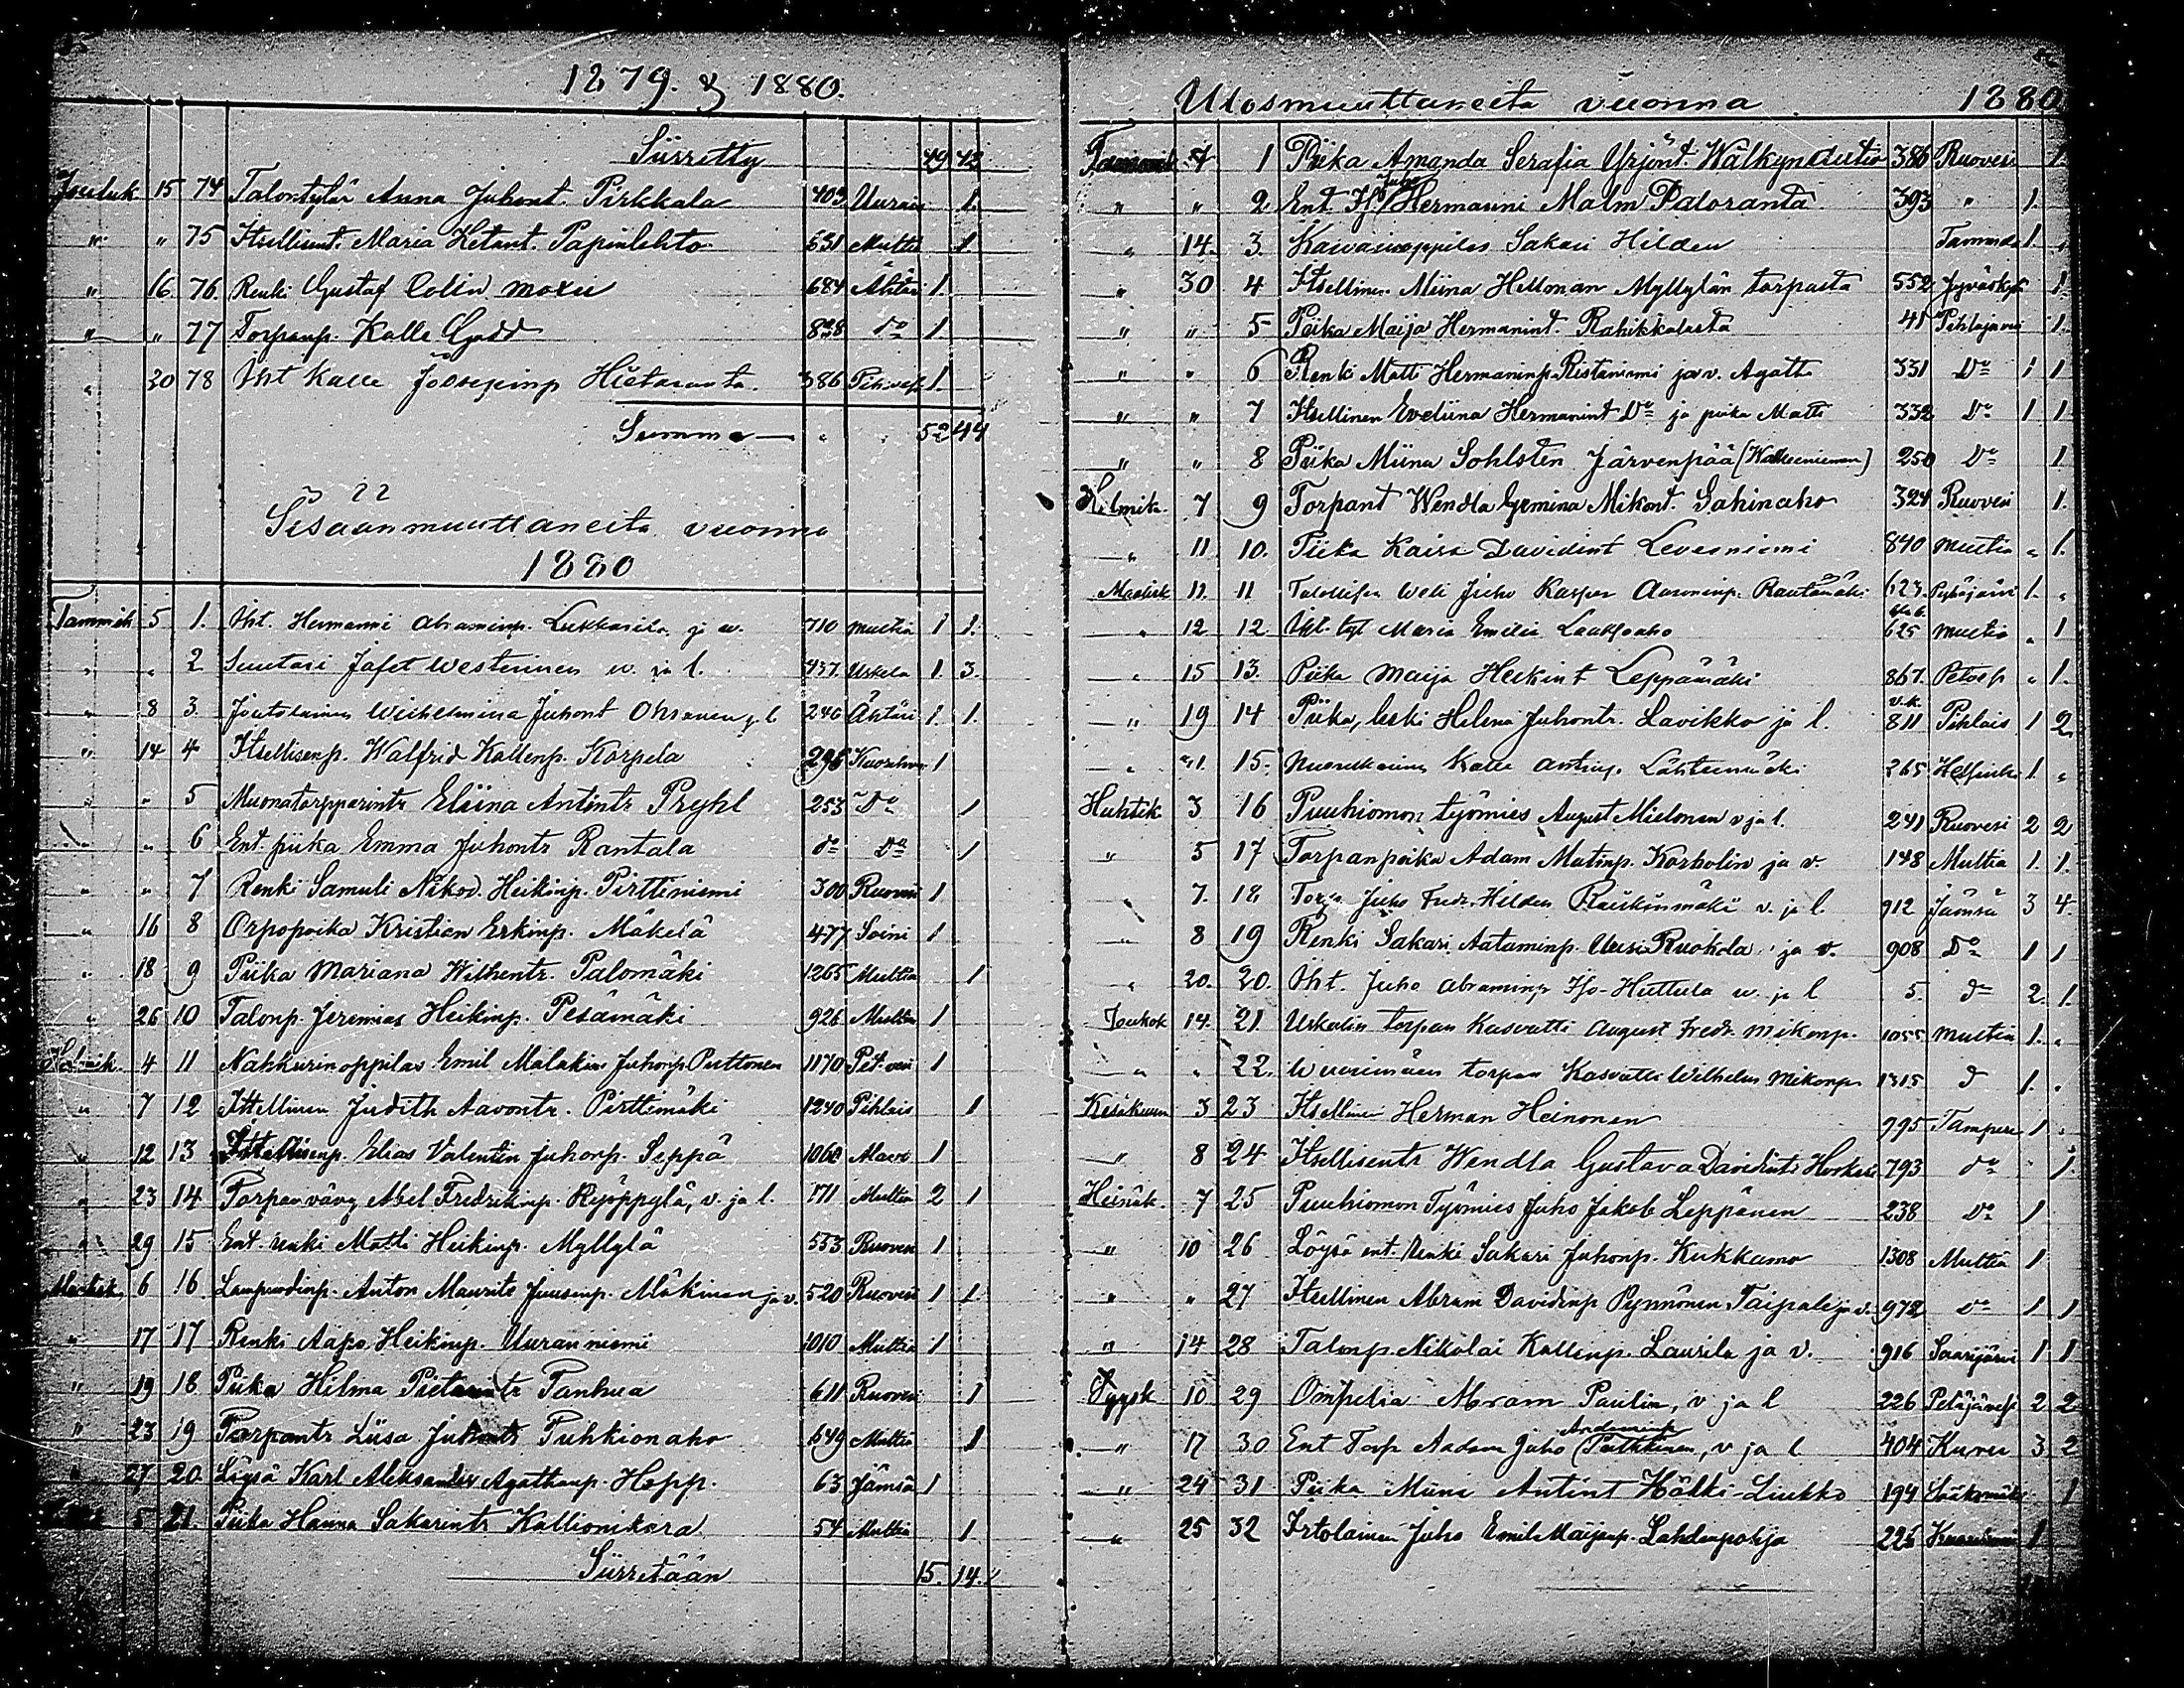 1879. & 1880.
Siirretty 49 42
Jouluk 15 74 Talontytär Anna Juhont. Pirkkala 403 1.
" " 75 Itsellisent. Maria Ketant. Papinlehto 631 Multia 1.
" 16 76. Renki Gustaf Colin 684 Ähtäri 1.
" " 77 Torpanp. Kalle Gadd 828 do 1
" 30 78 Kalle Jooseppinp Hietaranta 386 1.
Summa — " 52 44
Sisäänmuuttaneita vuonna
1880
Tammik 5 1. Hermanni Abraminp. ja w. 710 Multia 1 1.
" " 2 Suutari Jafet Westerinen w. ja l. 437 Uskela 1. 3.
" 8 3 Joutolainen Wilhelmina Juhont 246 Ähtäri 1. 1.
" 14 4 Itsellisenp. Walfrid Kallenp. Korpela 296 1
" " 5 Muonatorpparintr Eliina Antintr Pryhl 253 Do 1
" " 6 Ent. piika Emma Juhontr Rantala do Do 1
" " 7 Renki Samuli Nikod. Heikinp. Pirttiniemi 300 Ruovesi 1
" 16 8 Orpopoika Kristian Erkinp. Mäkelä 477 Soini 1
" 18 9 Piika Mariana Wilhentr. Palomäki 1265 Multia 1
" 26 10 Talonp. Jeremias Heikinp. Pesämäki 926 Multia 1
Helmik. 4 11 Nahkurinoppilas Emil Malakias Juhonp. Puttonen 1170 1
" 7 12 Itsellinen Judith Aarontr. Pirttimäki 1240 Pihlais 1
" 12 13 Itsellisenp. Elias Valentin Juhonp. Seppä 1060 1
" 23 14 Torpanvävy Abel Fredrikinp. Ryöppylä, v. ja l. 171 Multia 2 1
" 29 15 Ent. renki Matti Heikinp. Myllylä 553 Ruovesi 1
Maalisk 6 16 Anton Maurits Juusenp. Mäkinen ja v. 520 Ruovesi 1 1
" 17 17 Renki Aapo Heikinp. Uuranniemi 1010 Multia 1
" 19 18 Piika Hilma Pietarintr Tanhua 611 Ruovesi 1
" 23 19 Torpantr Liisa Juhontr Puhkionaho 649 Multia 1
" 27 20. Löysä Karl Aleksander Agathanp. Hopp. 63 Jämsä 1
5 21. Piika Hanna Sakarintr Kallionikara 54 Multia 1
Siirretään 15. 14.
Ulosmuuttaneita vuonna 1880
Tammik 1 Piika Amanda Serafia Yrjönt. Walkynautio 386 Ruovesi 1.
" " 2 Ent. Juho Hermanni Malm Paloranta 393 " 1.
" 14. 3. Sakari Hilden 1. "
" 30 4 Itsellinen Miina Hellman Myllylän torpasta 552 Jyväskyl 1.
" " 5 Piika Maija Hermanint. Rahikkalasta 41 Pihlajavesi 1.
" " 6 Renki Matti Hermaninp. Ristaniemi ja v. Agatta 331 Do 1 1
" " 7 Itsellinen Eveliina Hermanint Do ja poika Matti 332 Do 1 1
" " 8 Piika Miina Sohlsten Järvenpää 250 Do 1
Helmik. 7 9 Torpant Wendla Mikont. Sahinaho 324 Ruovesi 1.
" 11 10. Piika Kaisa Davidint Levaniemi 840 Multia " 1.
Maalisk 11. 11 Juho Kasper Aaroninp. Rautamäki 623. Pyhäjärvi 1. "
" 12 12. Maria Emilia 625 Multia " 1
" 15 13. Piika Maija Heikint Leppämäki 867. " 1.
" 19 14 Piika, leski Helena Juhontr. Lavikko ja l. 811 Pihlais 1 2
" 15. Kalle Antinp. Lähteenmäki 265 Helsinki 1. "
Huhtik 3 16 Puuhiomon työmies August Mielonen v ja l. 241 Ruovesi 2 2
" 5 17 Torpanpoika Adam Matinp. Korholin ja v. 148 Multia 1. 1.
" 7. 18. Torp. Juho Fredr. Hilden Raiskinmäki v. ja l. 912 Jämsä 3 4.
" 8 19 Renki Sakari Aataminp. Uusi Ruokola ja v. 908 Do 1 1
" 20. 20. Juho Abraminp Iso-Huttula w. ja l 5. do 2. 1.
Toukok 14. 21. Uskalin torpan kasvatti August Fredr. Mikonp. 1055 Multia 1. "
" " 22. torpan Kasvatti Wilhelm Mikonp 1315 d 1. "
Kesäkuun 3 23 Itsellinen Herman Heinonen 995 Tampere 1 "
" 8 24 Itsellisentr Wendla Gustava Davidintr 793 do 1.
Heinäk. 7 25 Puuhiomon Työmies Juho Jakob Leppänen 238 Do 1
" 10 26 Löysä ent. renki Sakari Juhonp. Kukkamo 1308 Multia 1
" " 27 Itsellinen Abram Davidinp Pynnönen Taipale ja v. 972 Do 1 1
" 14 28 Talonp. Nikolai Kallenp. Laurila ja v. 916 Saarijärvi 1 1
Syysk 10 29 Ompelia Abram Paulin, v ja l 226 Petäjävesi 2 2
" 17 30 Ent Torp Aadam Juho Puthkinen, v ja l 404 Kuru 3 2
" 24 31 Piika Miina Antint Hälli-Liukko 194 Sääksmäki 1
" 25 32 Irtolainen Juho Emil Maijanp. Lahdenpohja 226 1